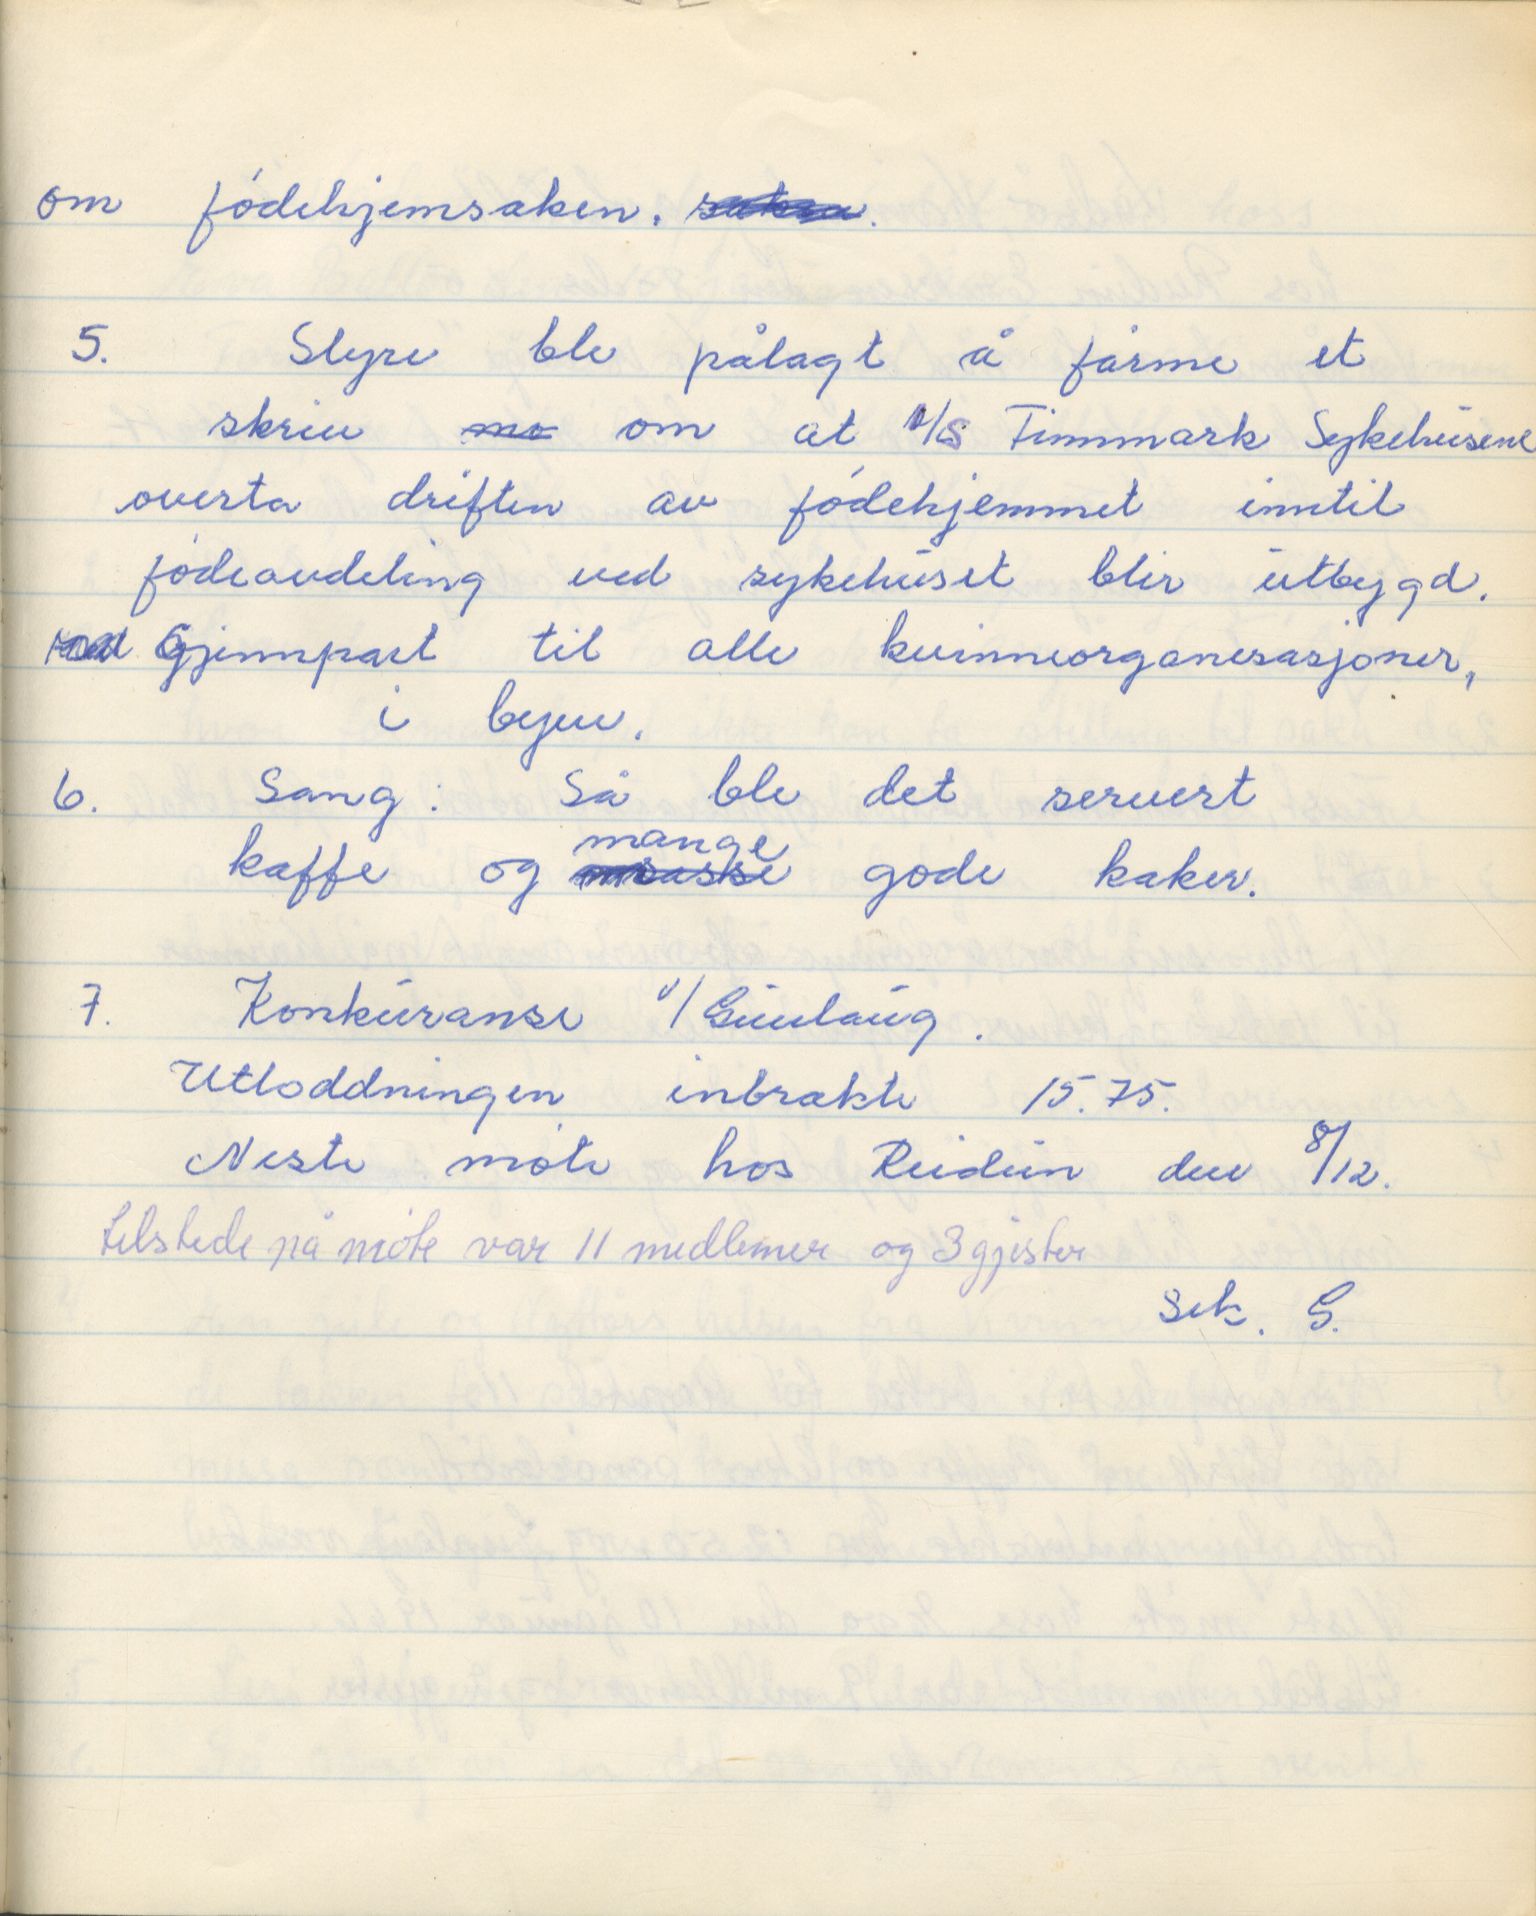 om fødehjemsaken.
5. Styre ble pålagt å forme et
skriv om at A/S Finnmark Sykehusene
overta driften av fødehjemmet inntil
fødeavdeling ved sykehuset blir utbygd.
Gjennpart til alle kvinneorganesasjoner,
i byen.
6. Sang: Så ble det servert
kaffe og mange gode kaker.
7. Konkuranse v/ Gunlaug.
Utloddningen inbrakte 15.75.
Neste møte hos Reidun den 8/12.
tilstede på møte var 11 medlemer og 3 gjester
Sek. G.